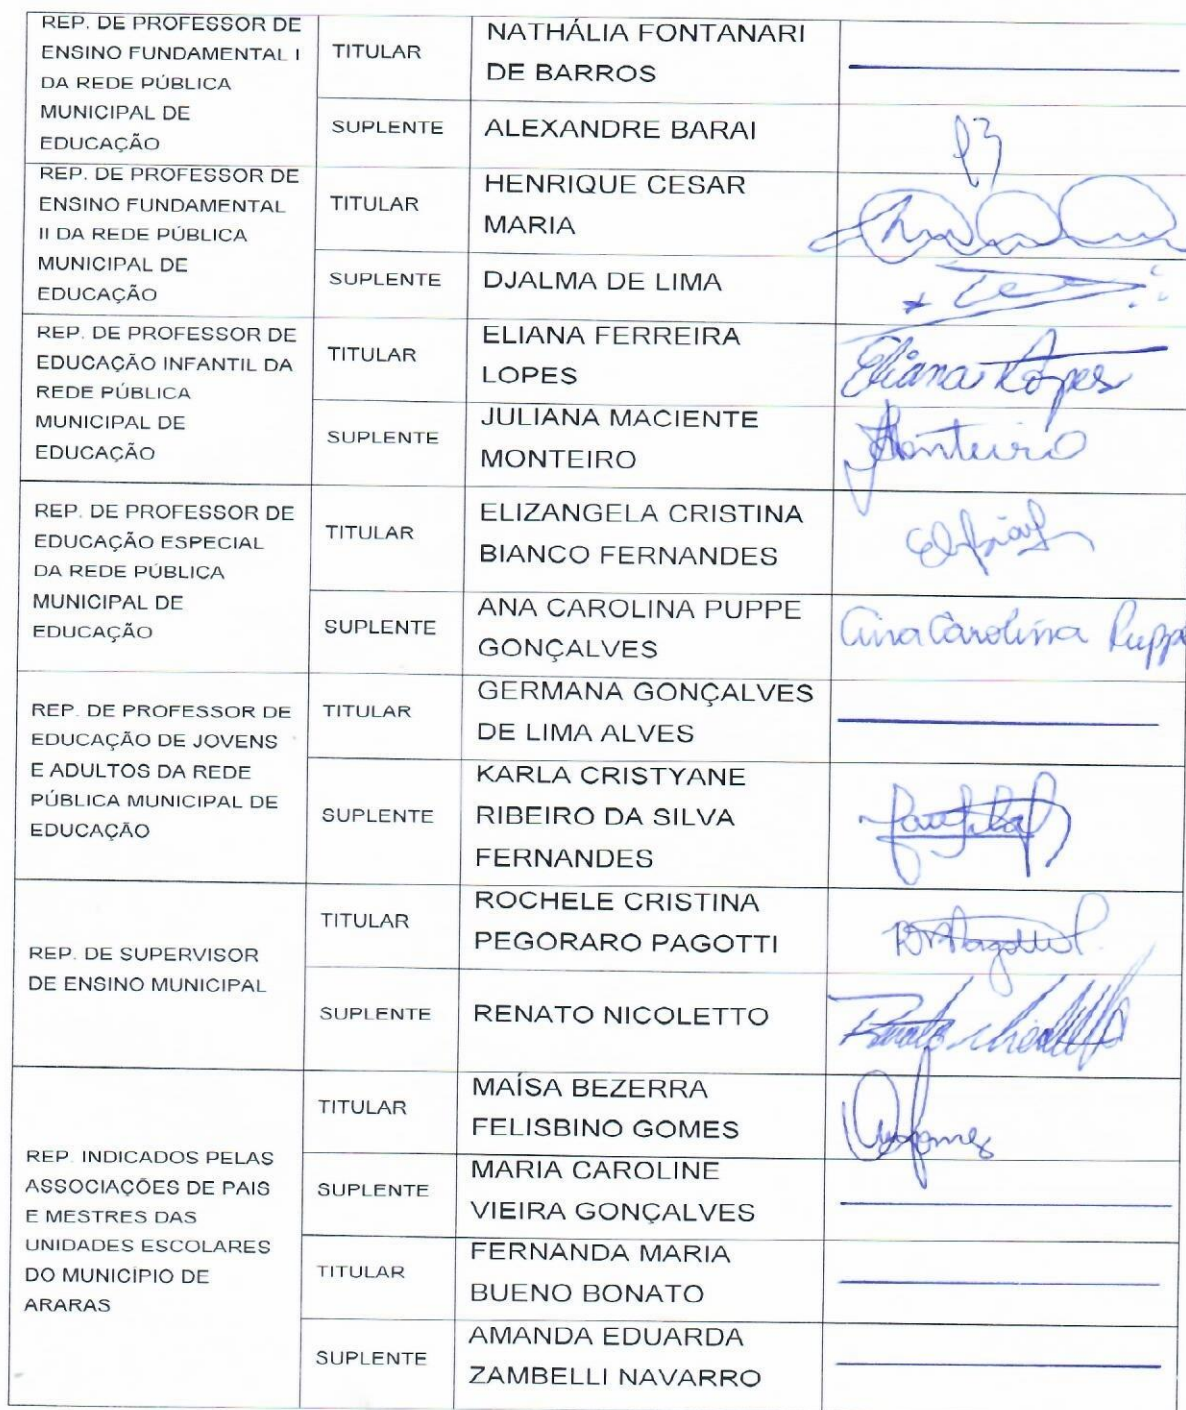 REP. DE PROFESSOR DE
ENSINO FUNDAMENTAL I
DA REDE PÚBLICA
MUNICIPAL DE
EDUCAÇÃO
TITULAR
NATHÁLIA FONTANARI
DE BARROS
SUPLENTE
ALEXANDRE BARAI
REP. DE PROFESSOR DE
ENSINO FUNDAMENTAL
II DA REDE PÚBLICA
MUNICIPAL DE
EDUCAÇÃO
TITULAR
HENRIQUE CESAR
MARIA
SUPLENTE
DJALMA DE LIMA
REP. DE PROFESSOR DE
EDUCAÇÃO INFANTIL DA
REDE PÚBLICA
MUNICIPAL DE
EDUCAÇÃO
TITULAR
ELIANA FERREIRA
LOPES
Eliana Lopes
SUPLENTE
JULIANA MACIENTE
MONTEIRO
Monteiro
REP. DE PROFESSOR DE
EDUCAÇÃO ESPECIAL
DA REDE PÚBLICA
MUNICIPAL DE
EDUCAÇÃO
TITULAR
ELIZANGELA CRISTINA
BIANCO FERNANDES
SUPLENTE
ANA CAROLINA PUPPE
GONÇALVES
Ana Carolina Puppe
REP. DE PROFESSOR DE
EDUCAÇÃO DE JOVENS
E ADULTOS DA REDE
PÚBLICA MUNICIPAL DE
EDUCAÇÃO
TITULAR
GERMANA GONÇALVES
DE LIMA ALVES
SUPLENTE
KARLA CRISTYANE
RIBEIRO DA SILVA
FERNANDES
REP. DE SUPERVISOR
DE ENSINO MUNICIPAL
TITULAR
ROCHELE CRISTINA
PEGORARO PAGOTTI
SUPLENTE
RENATO NICOLETTO
Renato Nicoletto
REP. INDICADOS PELAS
ASSOCIAÇÕES DE PAIS
E MESTRES DAS
UNIDADES ESCOLARES
DO MUNICÍPIO DE
ARARAS
TITULAR
MAÍSA BEZERRA
FELISBINO GOMES
SUPLENTE
MARIA CAROLINE
VIEIRA GONÇALVES
TITULAR
FERNANDA MARIA
BUENO BONATO
SUPLENTE
AMANDA EDUARDA
ZAMBELLI NAVARRO